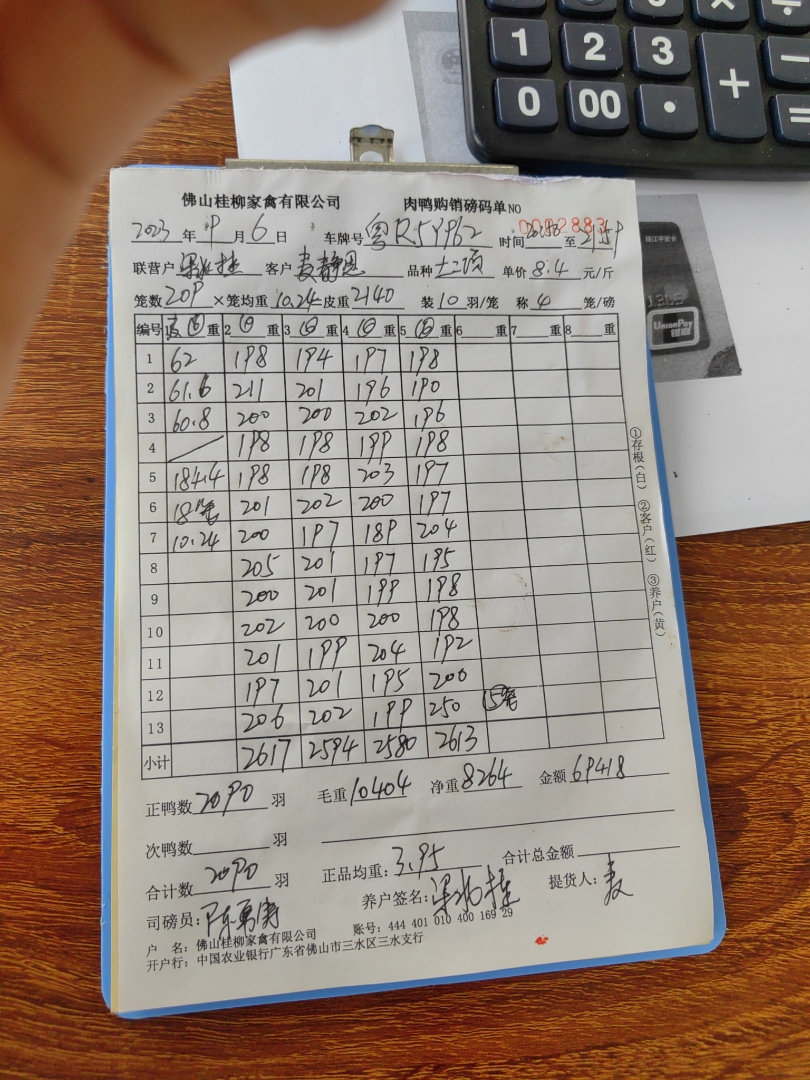 1 2 3 + −
0 00 · =
佛山桂柳家禽有限公司 肉鸭购销磅码单 NO
2023 年 9 月 6 日 车牌号 粤R59962 时间 至
联营户 客户 麦静恩 品种 单价 8.4 元/斤
笼数 209 ×笼均重 10.24 皮重 2140 装 10 羽/笼 称 4 笼/磅
编号 重 2 重 3 重 4 重 5 重 6 重 7 重 8 重
1 62 198 194 197 198
2 61.6 211 201 196 190
3 60.8 200 200 202 196
4 198 198 199 198
5 184.4 198 198 203 197
6 18笼 201 202 200 197
7 10.24 200 197 189 204
8 205 201 197 195
9 200 201 199 198
10 202 200 200 198
11 201 199 204 192
12 197 201 195 200
13 206 202 199 250 5笼
小计 2617 2594 2580 2613
正鸭数 2090 羽 毛重 10404 净重 8264 金额 69418
次鸭数 羽
合计数 2090 羽 正品均重: 3.95 合计总金额
司磅员: 养户签名: 提货人: 麦
户 名: 佛山桂柳家禽有限公司 账号: 444 401 010 400 169 29
开户行: 中国农业银行广东省佛山市三水区三水支行
①存根(白) ②客户(红) ③养户(黄)
UnionPay
银联